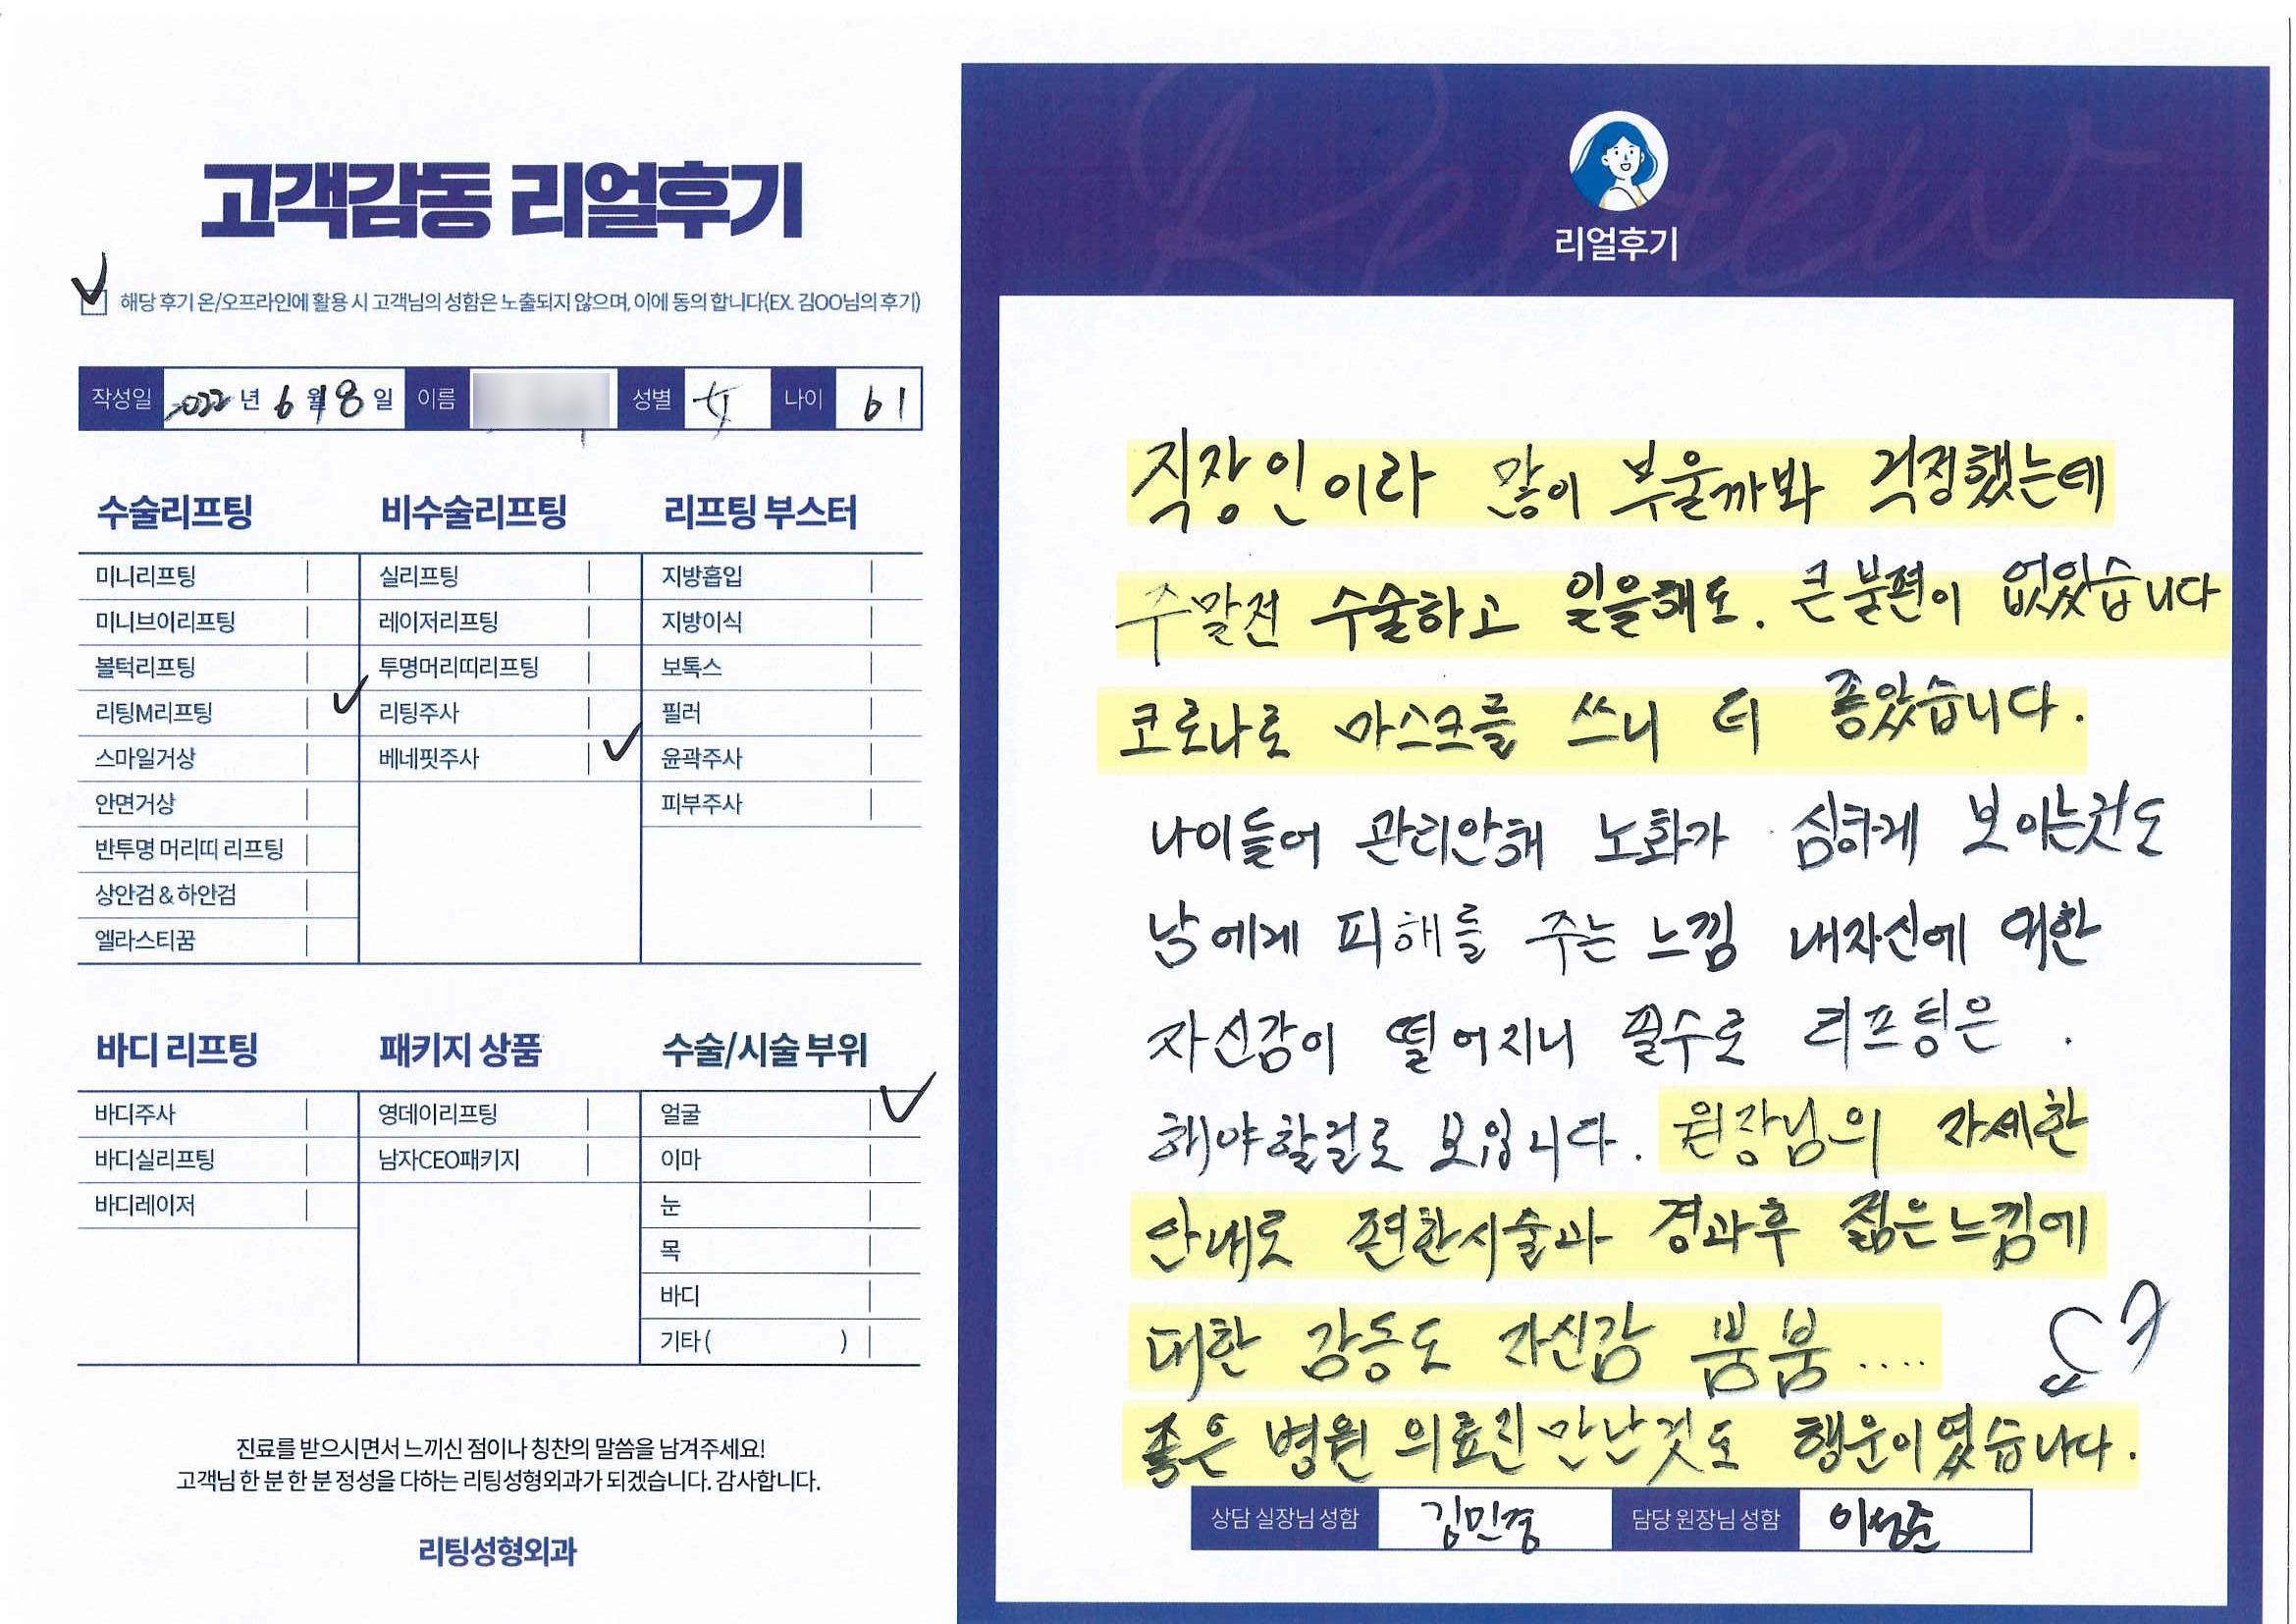 고객감동 리얼후기
해당 후기 온/오프라인에 활용 시 고객님의 성함은 노출되지 않으며, 이에 동의 합니다(EX. 김OO님의 후기)
작성일 2022년 6월 8일 이름 성별 女 나이 61
수술리프팅
미니리프팅
미니브이리프팅
볼턱리프팅
리팅M리프팅
스마일거상
안면거상
반투명 머리띠 리프팅
상안검 & 하안검
엘라스티꿈
비수술리프팅
실리프팅
레이저리프팅
투명머리띠리프팅
리팅주사
베네핏주사
리프팅 부스터
지방흡입
지방이식
보톡스
필러
윤곽주사
피부주사
바디 리프팅
바디주사
바디실리프팅
바디레이저
패키지 상품
영데이리프팅
남자CEO패키지
수술/시술 부위
얼굴
이마
눈
목
바디
기타 ( )
진료를 받으시면서 느끼신 점이나 칭찬의 말씀을 남겨주세요!
고객님 한 분 한 분 정성을 다하는 리팅성형외과가 되겠습니다. 감사합니다.
리팅성형외과
Review
리얼후기
직장인이라 많이 부울까봐 걱정했는데
주말전 수술하고 일을해도. 큰 불편이 없었습니다
코로나로 마스크를 쓰니 더 좋았습니다.
나이들어 관리안해 노화가 심하게 보이는것도
남에게 피해를 주는 느낌 내자신에 대한
자신감이 떨어지니 필수로 리프팅은
해야할걸로 보입니다. 원장님의 자세한
안내로 편한시술과 경과후 젊은느낌에
대한 감동도 자신감 뿜뿜....
좋은 병원 의료진만난것도 행운이였습니다.
상담 실장님 성함 김민경 담당 원장님 성함 이성준